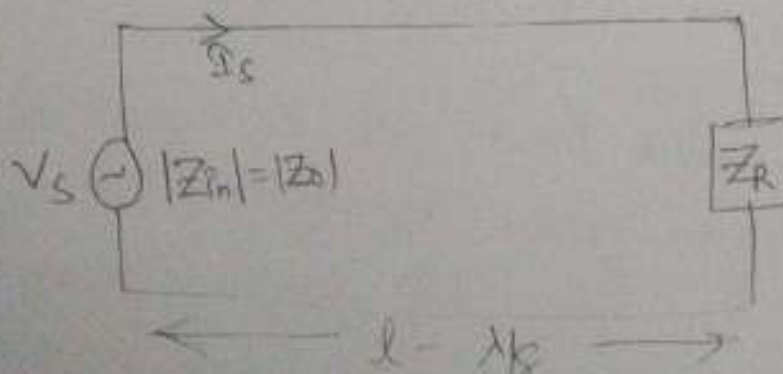 I_S
V_S |Z_in|=|Z_0| Z_R
l - λ/8